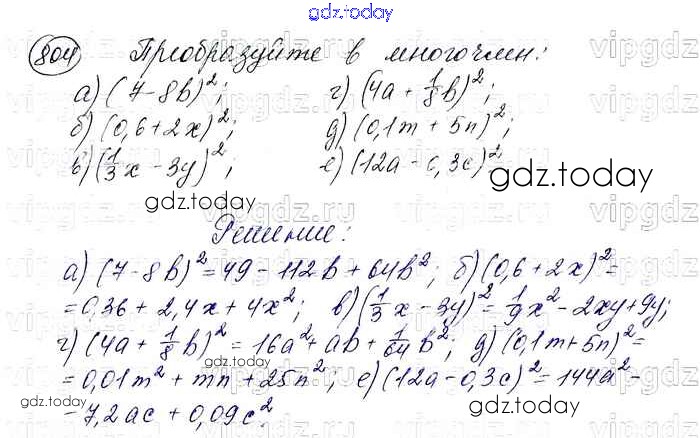 gdz.today
804 Преобразуйте в многочлен:
а) (7-8b)²; г) (4a + 1/8 b)²;
б) (0,6+2x)²; д) (0,1m + 5n)²;
в) (1/3 x - 3y)²; е) (12a - 0,3c)²
gdz.today gdz.today
Решение:
а) (7-8b)² = 49 - 112b + 64b²; б) (0,6+2x)² =
= 0,36 + 2,4x + 4x²; в) (1/3 x - 3y)² = 1/9 x² - 2xy + 9y;
г) (4a + 1/8 b)² = 16a² + ab + 1/64 b²; д) (0,1m + 5n)² =
= 0,01m² + mn + 25n²; е) (12a - 0,3c)² = 144a² -
- 7,2ac + 0,09c².
gdz.today gdz.today
vipgdz.ru